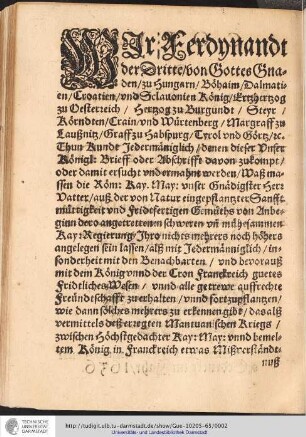 WIr Ferdynandt
der Dritte/von Gottes Gna-
den/zu Hungarn/Böhaim/Dalmati-
en/Croatien/vnd Sclauonien König/Ertzhertzog
zu Oesterreich/Hertzog zu Burgundt/Steyr/
Kärndten/Crain/vnd Würtenberg/Marggraff zu
Laußnitz/Graff zu Habspurg/Tyrol vnd Görtz/rc.
Thun Kundt Jedermäniglich/denen dieser Vnser
Königl: Brieff oder Abschrifft dauon zukompt/
oder damit ersucht vnd ermahnt werden/Waß mas-
sen die Röm: Kay. May: vnser Gnädigster Herr
Vatter/auß der von Natur eingepflantzter Sanfft
mürtigkeit vnd Fridtfertigen Gemüths von Anbe-
ginn dero angetrettenen schweren vñ mühesammen
Kay: Regierung/Ihro nichts mehrers noch höhers
angelegen sein lassen/alß mit Jedermänniglich/in-
sonderheit mit den Benachbarten/vnd beuorauß
mit dem König vnnd der Cron Franckreich guetes
Fridtliches Wesen/vnnd alle getrewe auffrechte
Freündtschafft zu erhalten/vnnd fortzupflantzen/
wie dann solches mehrers zu erkennen gibt/das alß
vermittels deß erregten Mantuanischen Kriegs/
zwischen Höchstgedachter Kay: May: vnnd bemel-
tem König in Franckreich etwas Mißverständt-
nuß
TECHNISCHE
UNIVERSITÄT
DARMSTADT
http://tudigit.ulb.tu-darmstadt.de/show/Gue-10205-65/0002
Universitäts- und Landesbibliothek Darmstadt